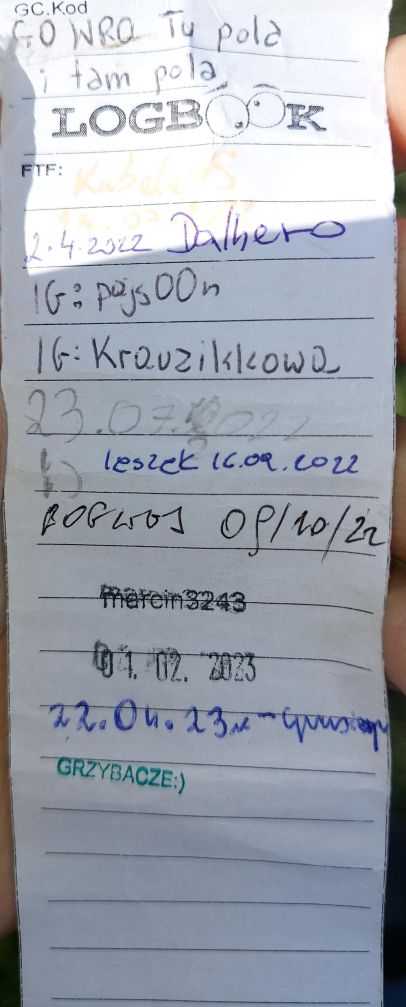 GC.Kod
GO WRO Tu pola
i tam pola
LOGBOOK
FTF:
2.4.2022 Dalhero
IG: pajs00n
IG: Krauzikkowa
23.07.2022
leszek 16.09.2022
09/10/22
marcin3243
01. 02. 2023
22.04.23
GRZYBACZE:)